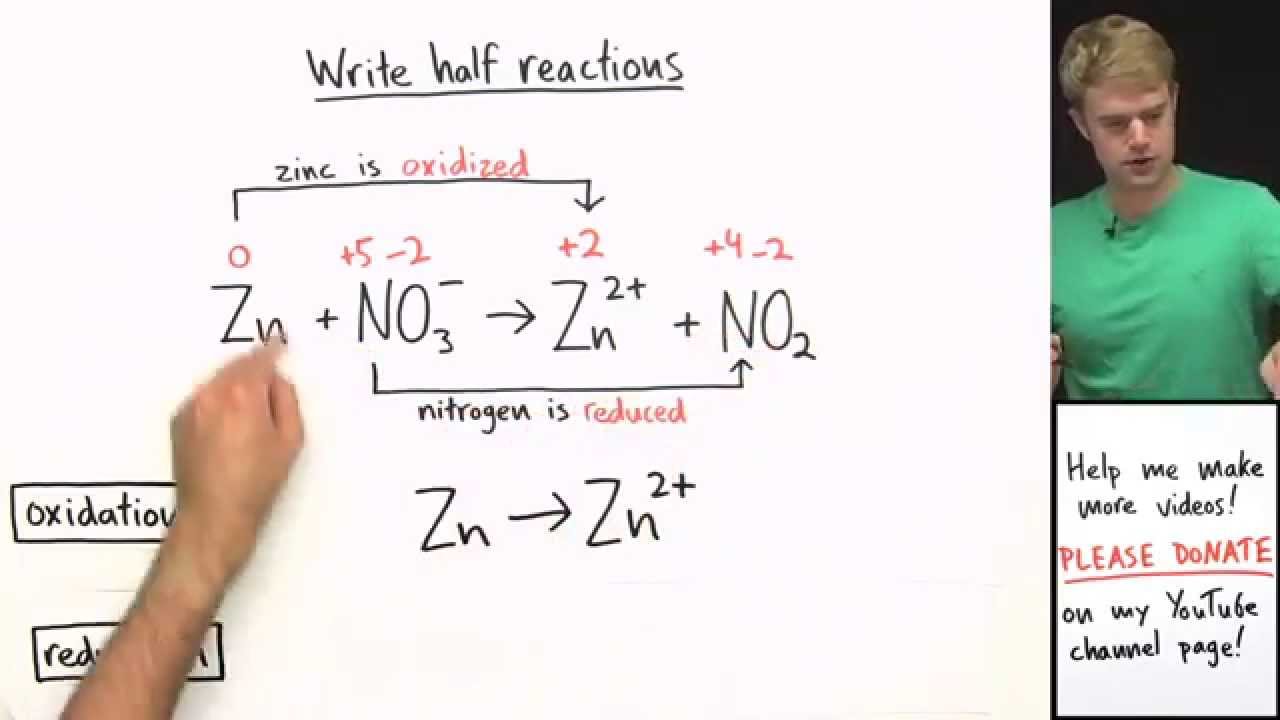 Write half reactions
zinc is oxidized
0 +5 -2 +2 +4 -2
Zn + NO₃⁻ → Zn²⁺ + NO₂
nitrogen is reduced
Zn → Zn²⁺
Help me make
more videos!
PLEASE DONATE
on my YouTube
channel page!